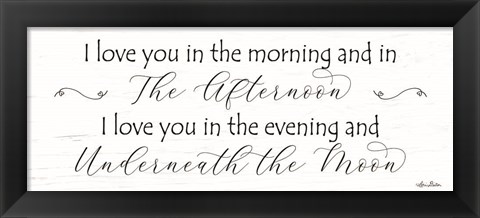 I love you in the morning and in
The Afternoon
I love you in the evening and
Underneath the Moon